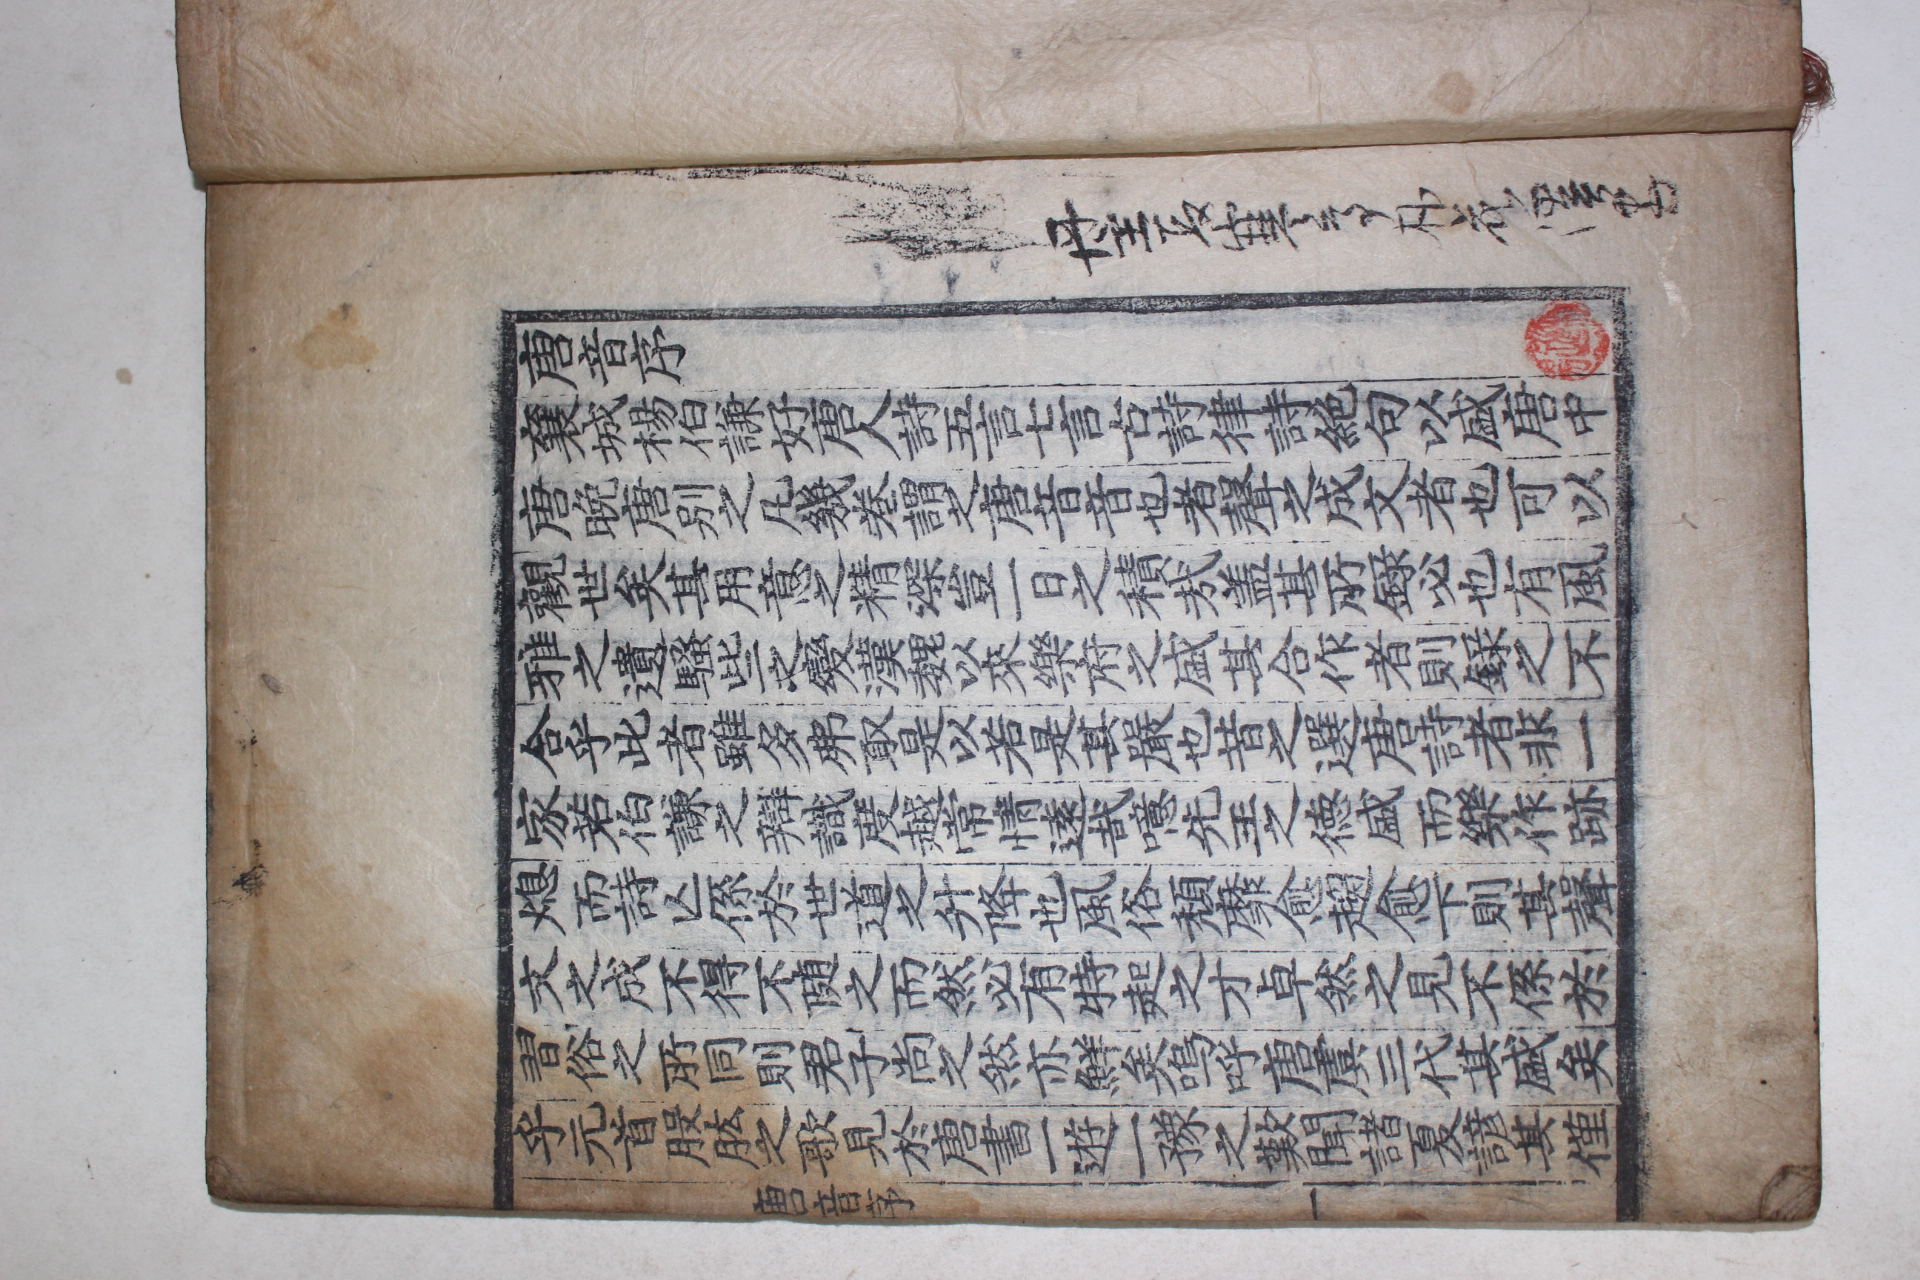 唐音序
襄城楊伯謙好唐人詩五言七言古詩律詩絶句以盛唐中
唐晩唐別之凡幾卷謂之唐音音也者聲之成文者也可以
觀世矣其用意之精深豈一日之積哉盖其所錄必也有風
雅之遺騷些之變漢魏以來樂府之盛其合作者則錄之不
合乎此者雖多弗取是以若是其嚴也昔之選唐詩者非一
家若伯謙之辯識度越常情遠哉噫先王之德盛而樂作跡
熄而詩亡係於世道之升降也風俗頹靡愈趨愈下則其聲
文之成不得不隨之而然必有特起之才卓然之見不係於
習俗之所同則君子尚之然亦鮮矣嗚呼唐虞三代其盛矣
乎元首股肱之歌見於唐書一遊一豫之敷聞諸夏諺其僅
唐音序 一